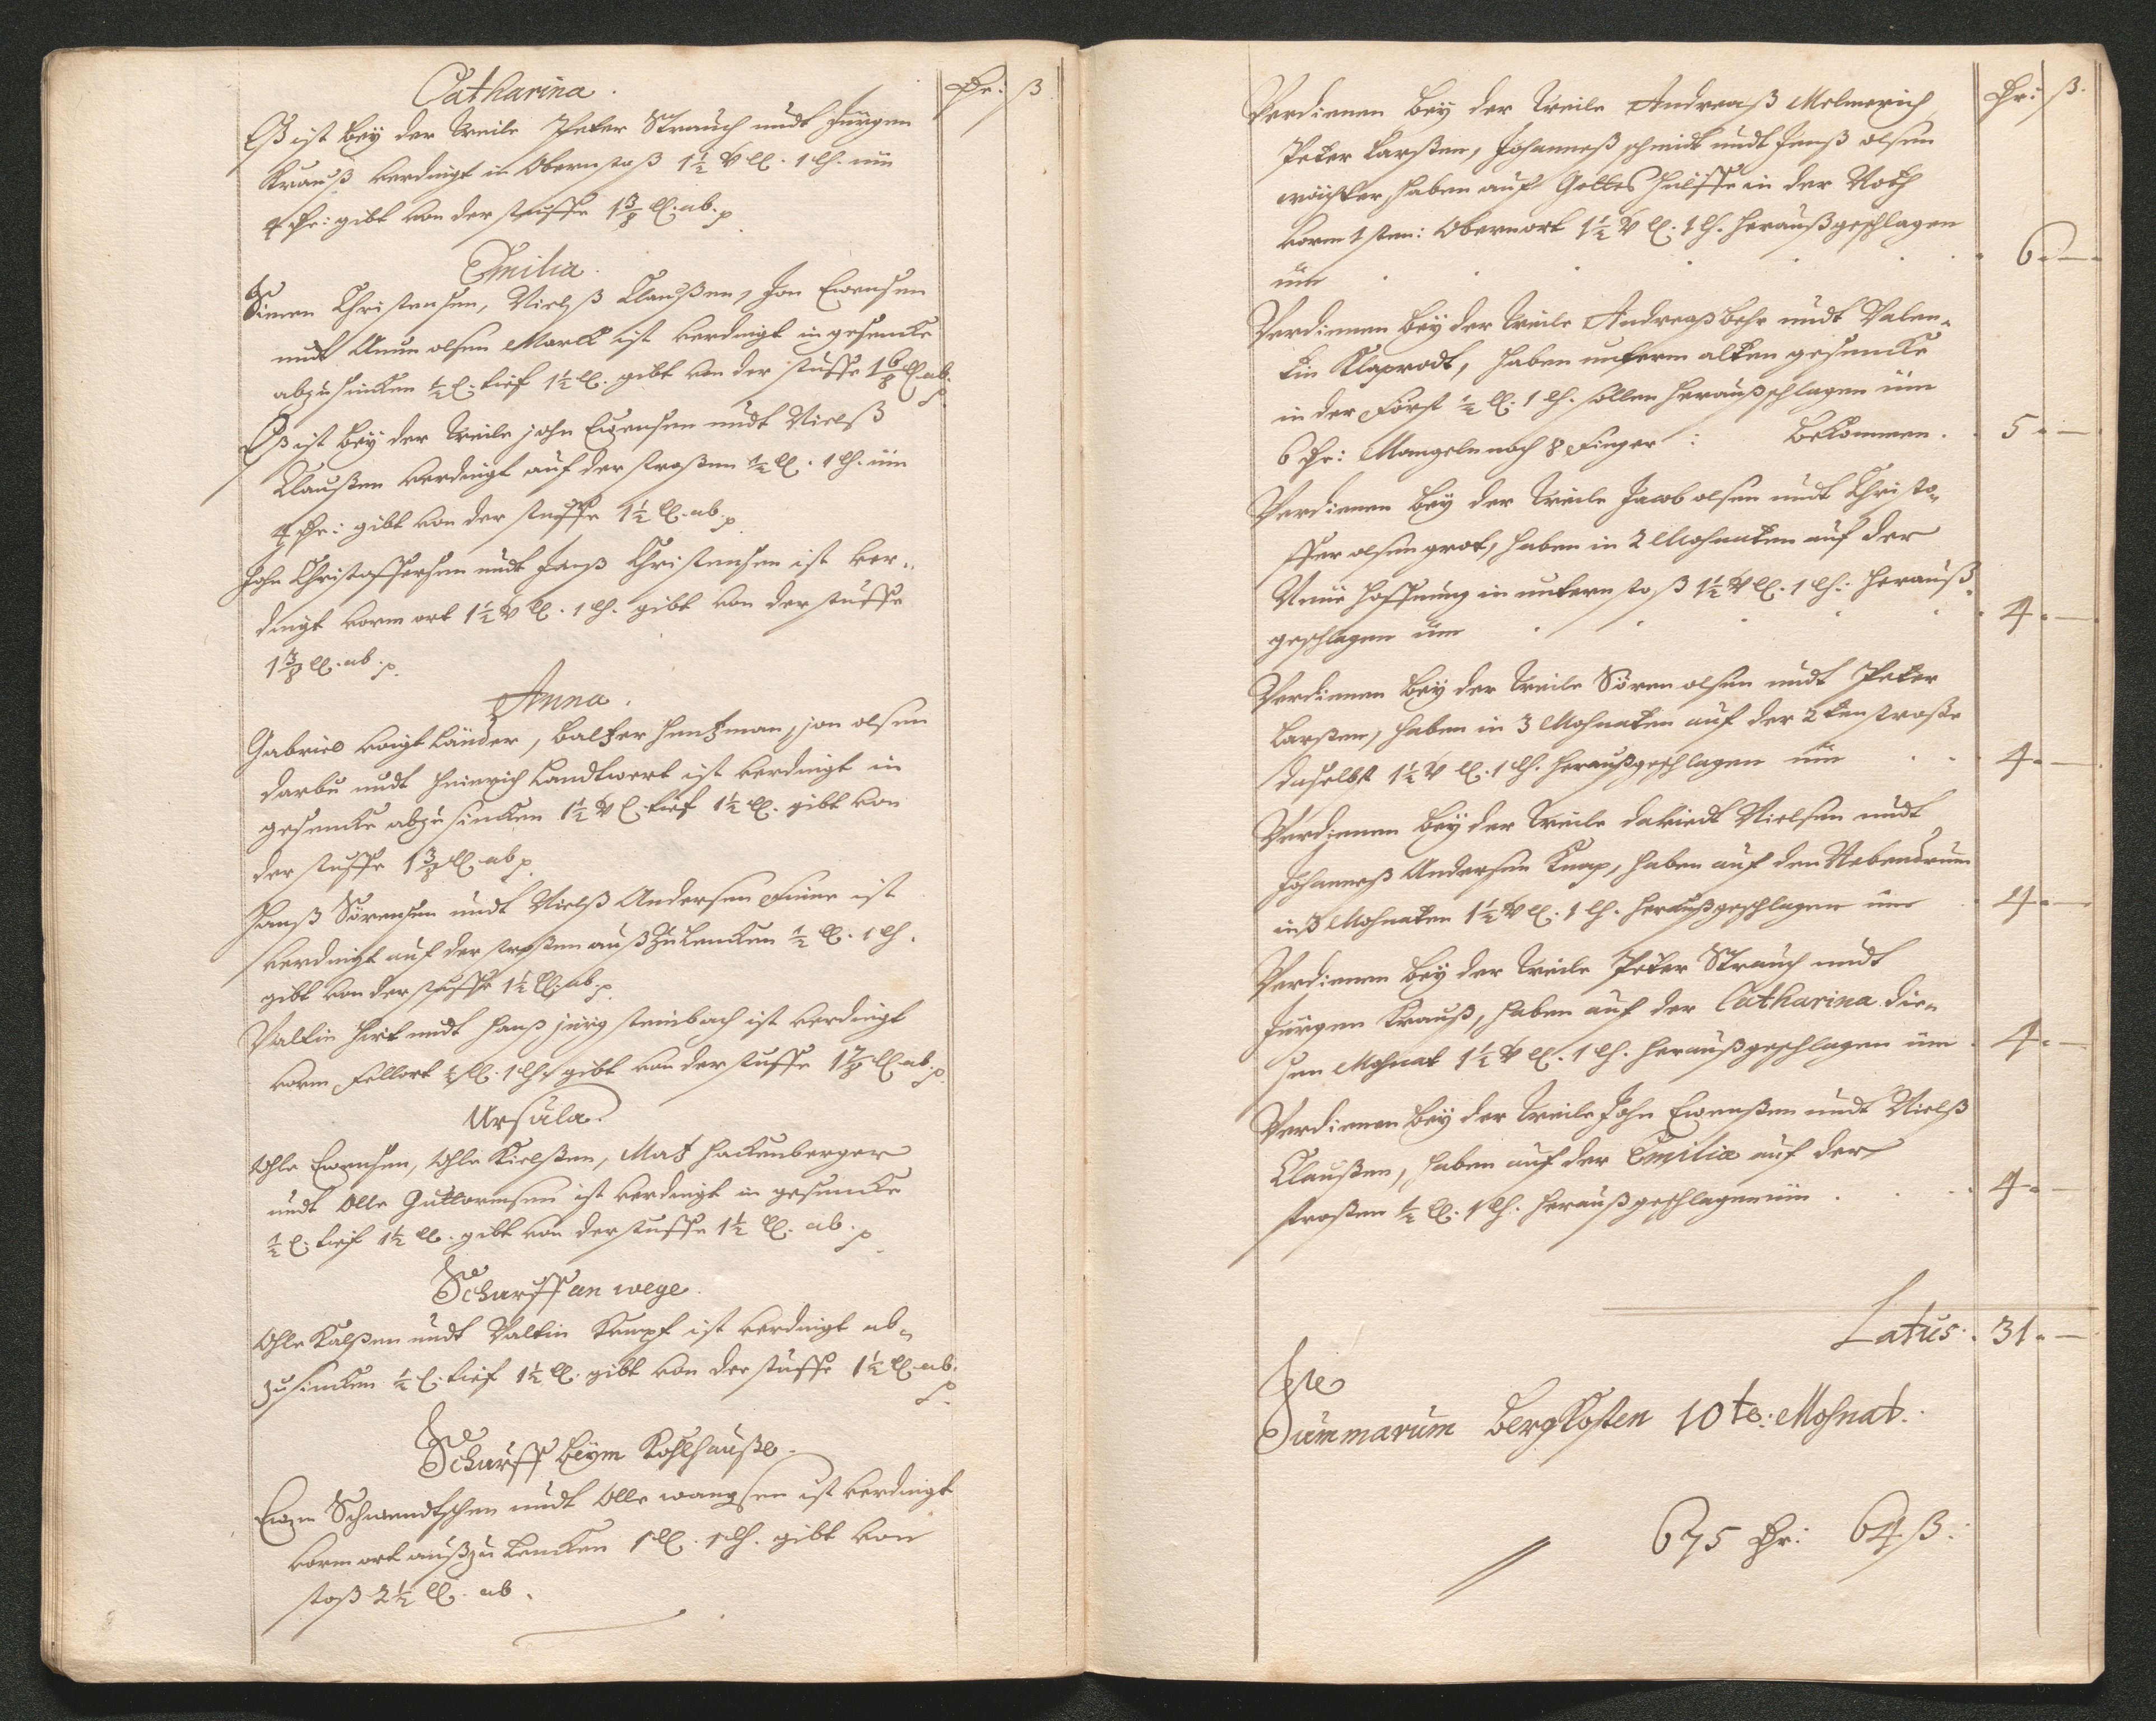 Catharina.
Pr: ß
Eß ist bey der Weile Peter Strauch undt Jürgen
Krauß verdingt in Obernstoß 1½ ll. 1 lh. üm
4 Pr: gibt von der stuffe 1 3/8 ll. ab.
Emilia.
Simen Christensen, Nielß Claußen, Jon Evensen
undt Amun olsen Marck ist verdingt in gesencke
abzusincken ½ l. tief 1½ ll. gibt von der stuffe 1 6/8 ll ab.
Eß ist bey der Weile john Evensen undt Nielß
Claußen verdingt auf der stroßen ½ ll. 1 lh. üm
4 Pr: gibt von der stuffe 1½ ll. ab.
John Christoffersen undt Jenß Christensen ist ver-
dingt vorm ort 1½ ll. 1 lh. gibt von der stuffe
1 3/8 ll. ab.
Anna.
Gabriel voigtländer, Baltzer Hentzman, jon olsen
darbu undt Heinrich Landtwert ist verdingt in
gesencke abzusincken 1½ l. tief 1½ ll. gibt von
der stuffe 1 3/8 ll. ab
Hanß Sörensen undt Nielß Andersen ist
verdingt auf der stroßen auß zu lencken ½ ll. 1 lh.
gibt von der stuffe 1½ ll. ab.
Valtin Hirt undt Hanß jürg steinbach ist verdingt
vorm Fellort ½ ll. 1 lh. gibt von der stuffe 1 7/8 ll. ab.
Ursula.
Ohle Evensen, Ohle Nielßen, Matz Hackenberger
undt Olle Guttormsen ist verdingt in gesencke
½ l. tief 1½ ll. gibt von der stuffe 1½ ll. ab.
Schurff an wege.
Ohle Kalßen undt Valtin Kempf ist verdingt ab-
zusincken ½ l. tief 1½ ll. gibt von der stuffe 1½ ll. ab.
Schurff beym Kohlhauße.
Even Schwendtschen undt Olle wangsen ist verdingt
vorm ort außzu lencken 1 ll. 1 lh. gibt von
stoß 2½ ll. ab.
Pr: ß.
Verdienen bey der Weile Andreaß Melmerich
Peter Larßen, Johanneß schmidt undt Jenß olsen
wächter, haben auf Gottes Hülffe in der Noth
vorm 1sten: Obernort 1½ ll. 1 lh. heraußgeschlagen
üm . . . . . 6. —
Verdienen bey der Weile Andreaß Behr undt Valen-
tin Klaprodt, haben unterm alten gesencke
in der Först ½ ll. 1 lh. sollen heraußschlagen üm
6 Pr: Mangeln noch 8 Finger: bekommen. 5. —
Verdienen bey der Weile Jacob olsen undt Christo-
ffer olsen grot, haben in 2 Mohnaten auf der
Neue Hoffnung in unternstoß 1½ ll. 1 lh: herauß-
geschlagen üm . . . . 4. —
Verdienen bey der Weile Sören olsen undt Peter
Larßen, haben in 3 Mohnaten auf der 2ten stroße
daselbst 1½ ll. 1 lh. heraußgeschlagen üm . . 4. —
Verdienen bey der Weile daviedt Nielsen undt
Johanneß Andersen Knap, haben auf den Nebendrum
in 3 Mohnaten 1½ ll. 1 lh. heraußgeschlagen üm . 4. —
Verdienen bey der Weile Peter Strauch undt
Jürgen Krauß, haben auf der Catharina die-
sen Mohnat 1½ ll. 1 lh. heraußgeschlagen üm . 4. —
Verdienen bey der Weile John Evenßen undt Nielß
Claußen, haben auf der Emilia auf der
stroßen ½ ll. 1 lh. heraußgeschlagen üm . . . 4. —
Latus. . 31. —
Summarum bergKosten 10te: Mohnat.
675 Pr: 64 ß: